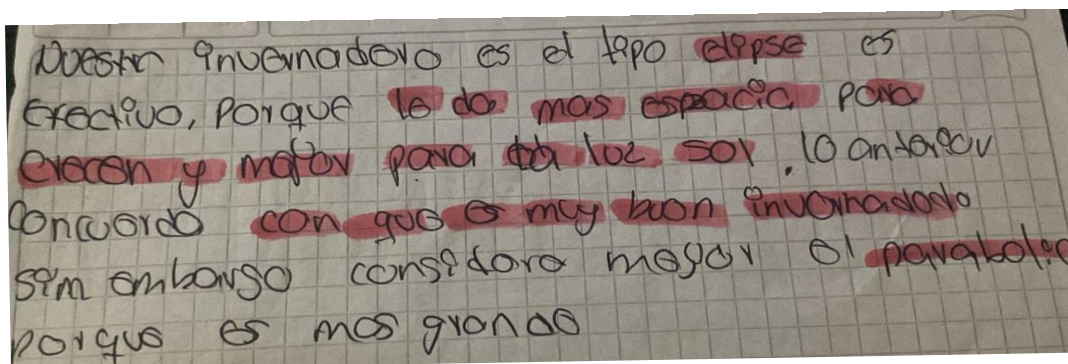 Nuestro invernadero es el tipo elipse es
efectivo, porque le da mas espacia para
crecen y mejor para la luz sol, lo anterior
concuerdo con que es muy buen invernadodo
sim embargo considero mayor el parabolic
porque es mas grande